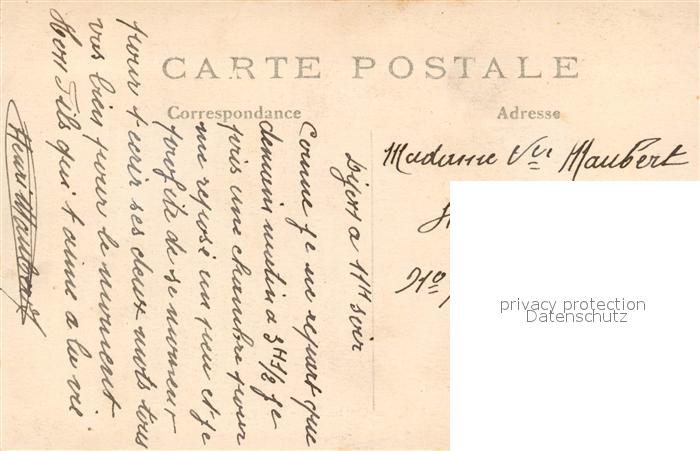 CARTE POSTALE
Correspondance
Adresse
Dijon a 11H soir
Comme je ne repart que
demain matin a 3H1/2 je
pris une chambre pour
me reposé un peu et je
profite de se moment
pour t'ecrir ses deux mots tous
vas bien pour le moment
Ton Fils qui t'aime a la vie
Henri Maubert
Madame Vve Maubert
privacy protection
Datenschutz